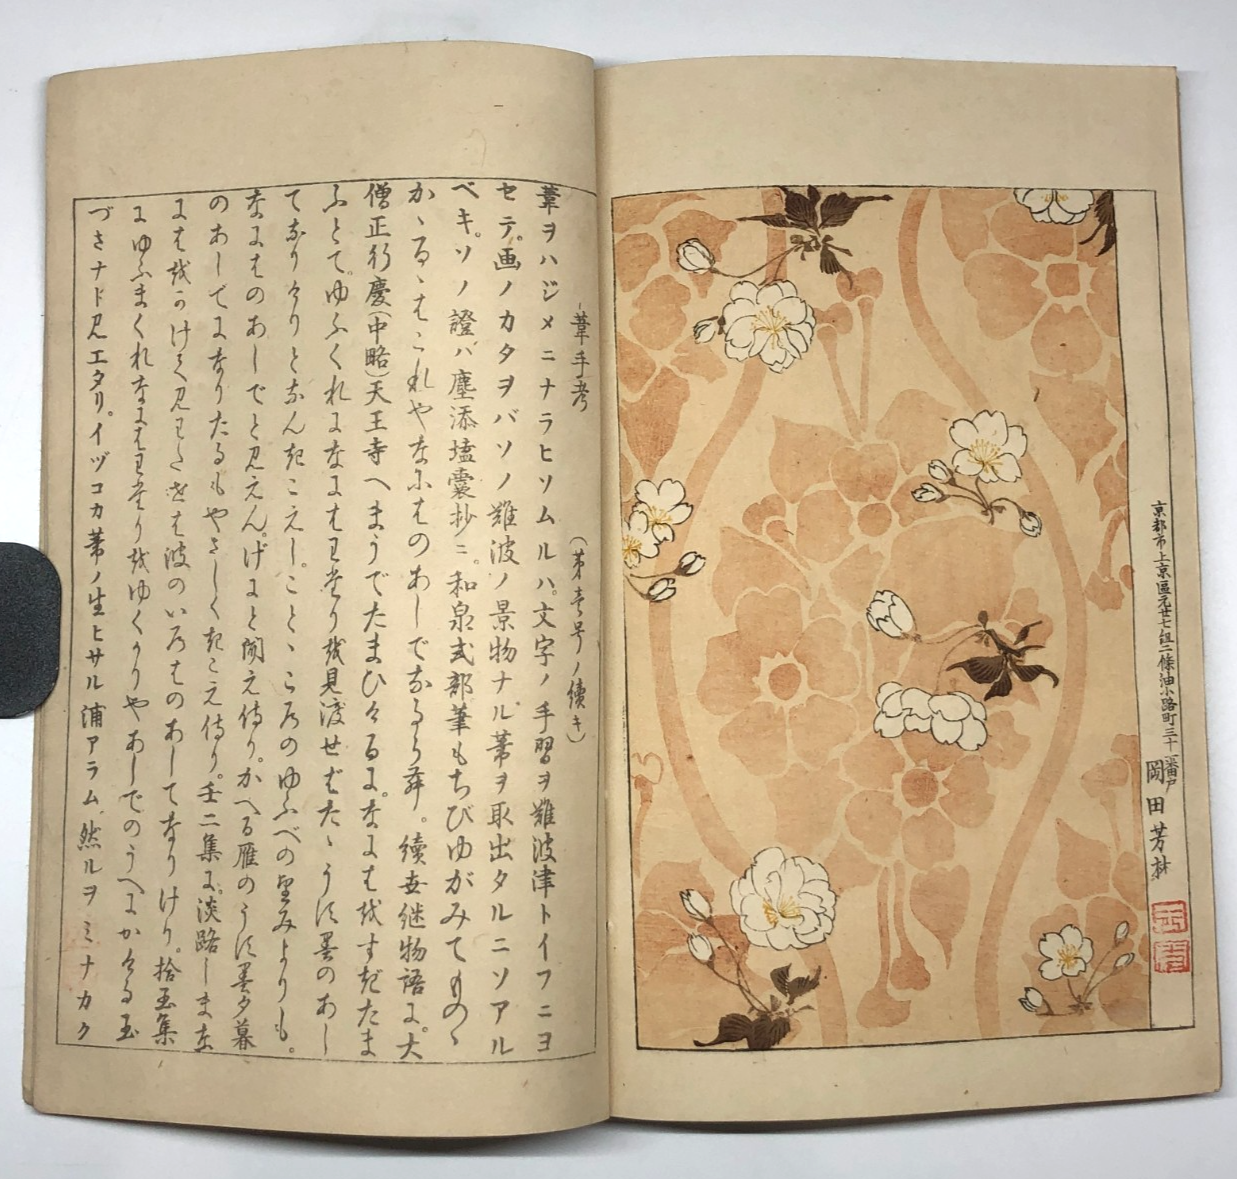 京都市上京區元廿七組二條油小路町三十一番戸 岡田芳林
葦手考 (第壱号ノ續キ)
葦ヲハジメニナラヒソムルハ。文字ノ手習ヲ難波津トイフニヨ
セテ。画ノカタヲバソノ難波ノ景物ナル。葦ヲ取出タルニソアル
ベキ。ソノ證バ塵添壒囊抄ニ。和泉式部筆もちびゆがみてものゝ
かゝるゝはこれやなにはのあしでなるらむ。續世継物語に。大
僧正行慶(中略)天王寺へまうでたまひけるに。なにはをすぎたま
ふとて。ゆふくれになにはわたりを見渡せばたゝうす墨のあし
てなりけりとなんきこえし。ことゝころのゆふべの望みよりも。
なにはのあしでと見えん。げにと聞え侍り。かへる雁のうす墨夕暮
のあしでになりたるもやさしくきこえ侍り。壬二集に。淡路しまな
にはをかけて見わたせは波のいろはのあしてなりけり。拾玉集
にゆふまくれなにはわたりをゆくかりやあしでのうへにかける玉
づさナド見エタリ。イヅコカ葦ノ生ヒサル浦アラム。然ルヲミナカク